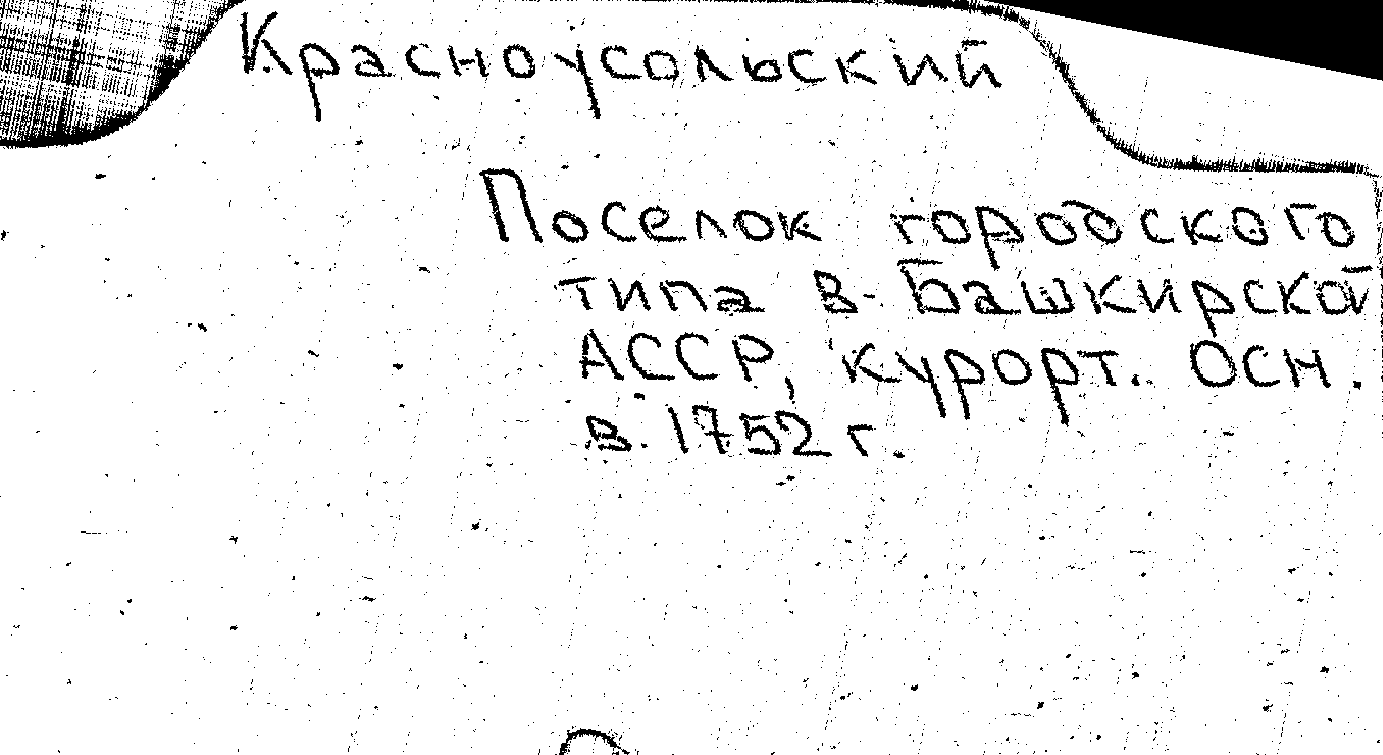 Красноусольский
Поселок городского
типа в Башкирской
АССР, курорт. Осн.
в 1752 г.